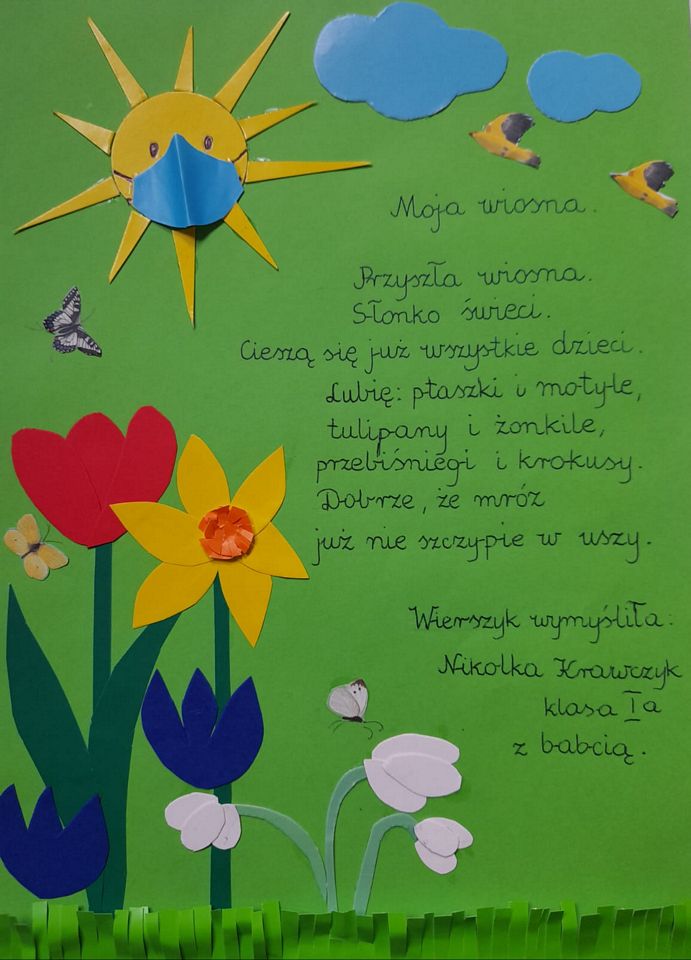 Moja wiosna.
Przyszła wiosna.
Słonko świeci.
Cieszą się już wszystkie dzieci.
Lubię: ptaszki i motyle,
tulipany i żonkile,
przebiśniegi i krokusy.
Dobrze, że mróz
już nie szczypie w uszy.
Wierszyk wymyśliła:
Nikolka Krawczyk
klasa Ia
z babcią.